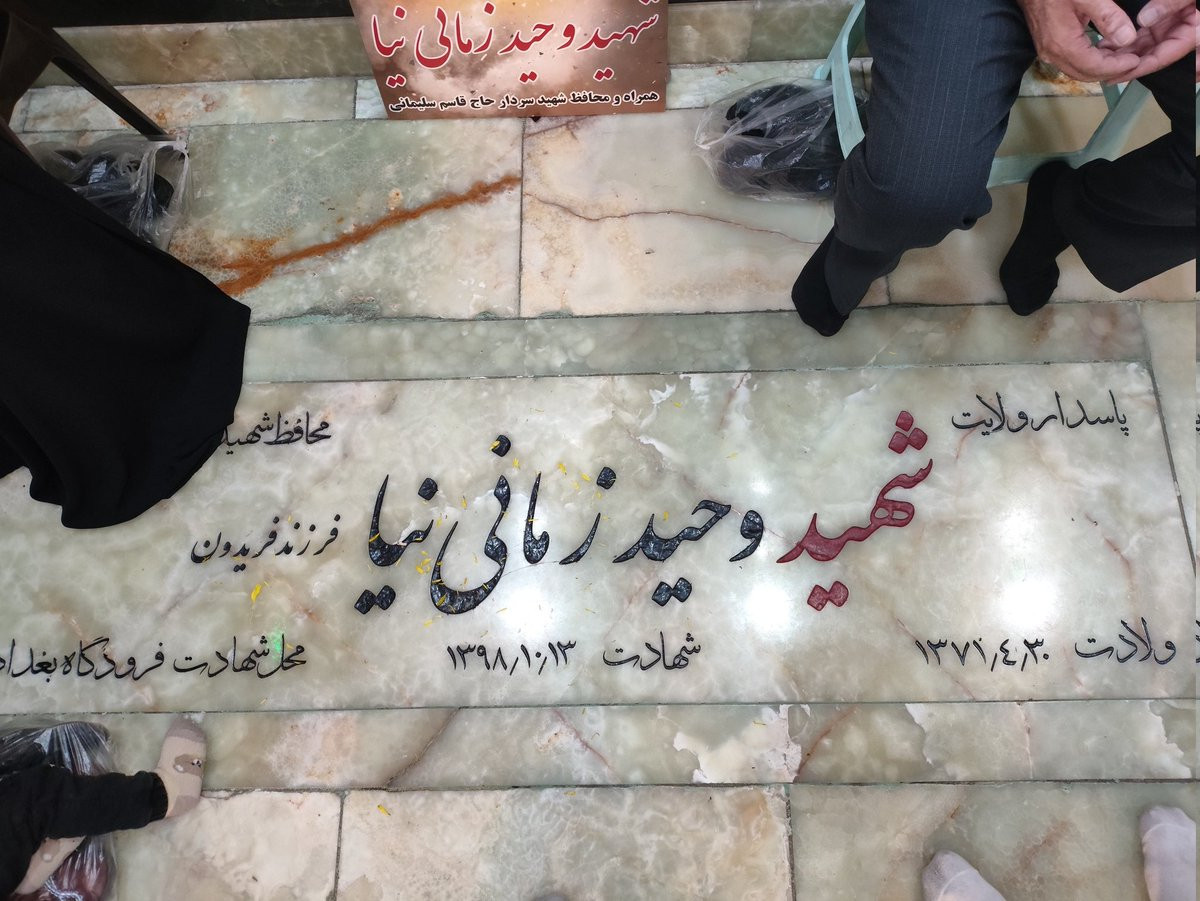 شهید وحید زمانی نیا
همراه و محافظ شهید سردار حاج قاسم سلیمانی
پاسدار ولایت
محافظ شهید
شهید وحید زمانی نیا
فرزند فریدون
ولادت ۱۳۷۱٫۴٫۳۰
شهادت ۱۳۹۸٫۱۰٫۱۳
محل شهادت فرودگاه بغداد